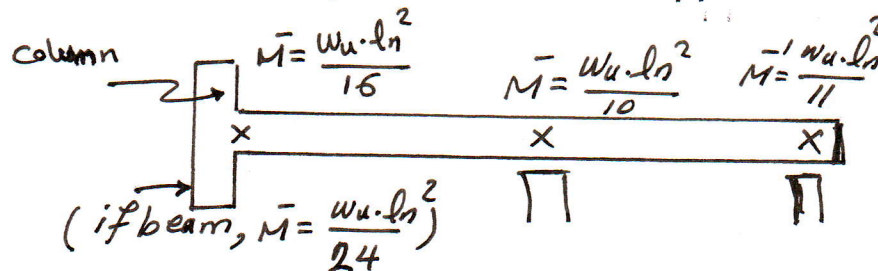 column
M⁻ = wu·ln²/16
M⁻ = wu·ln²/10
M⁻ = wu·ln²/11
x x x
(if beam, M⁻ = wu·ln²/24)